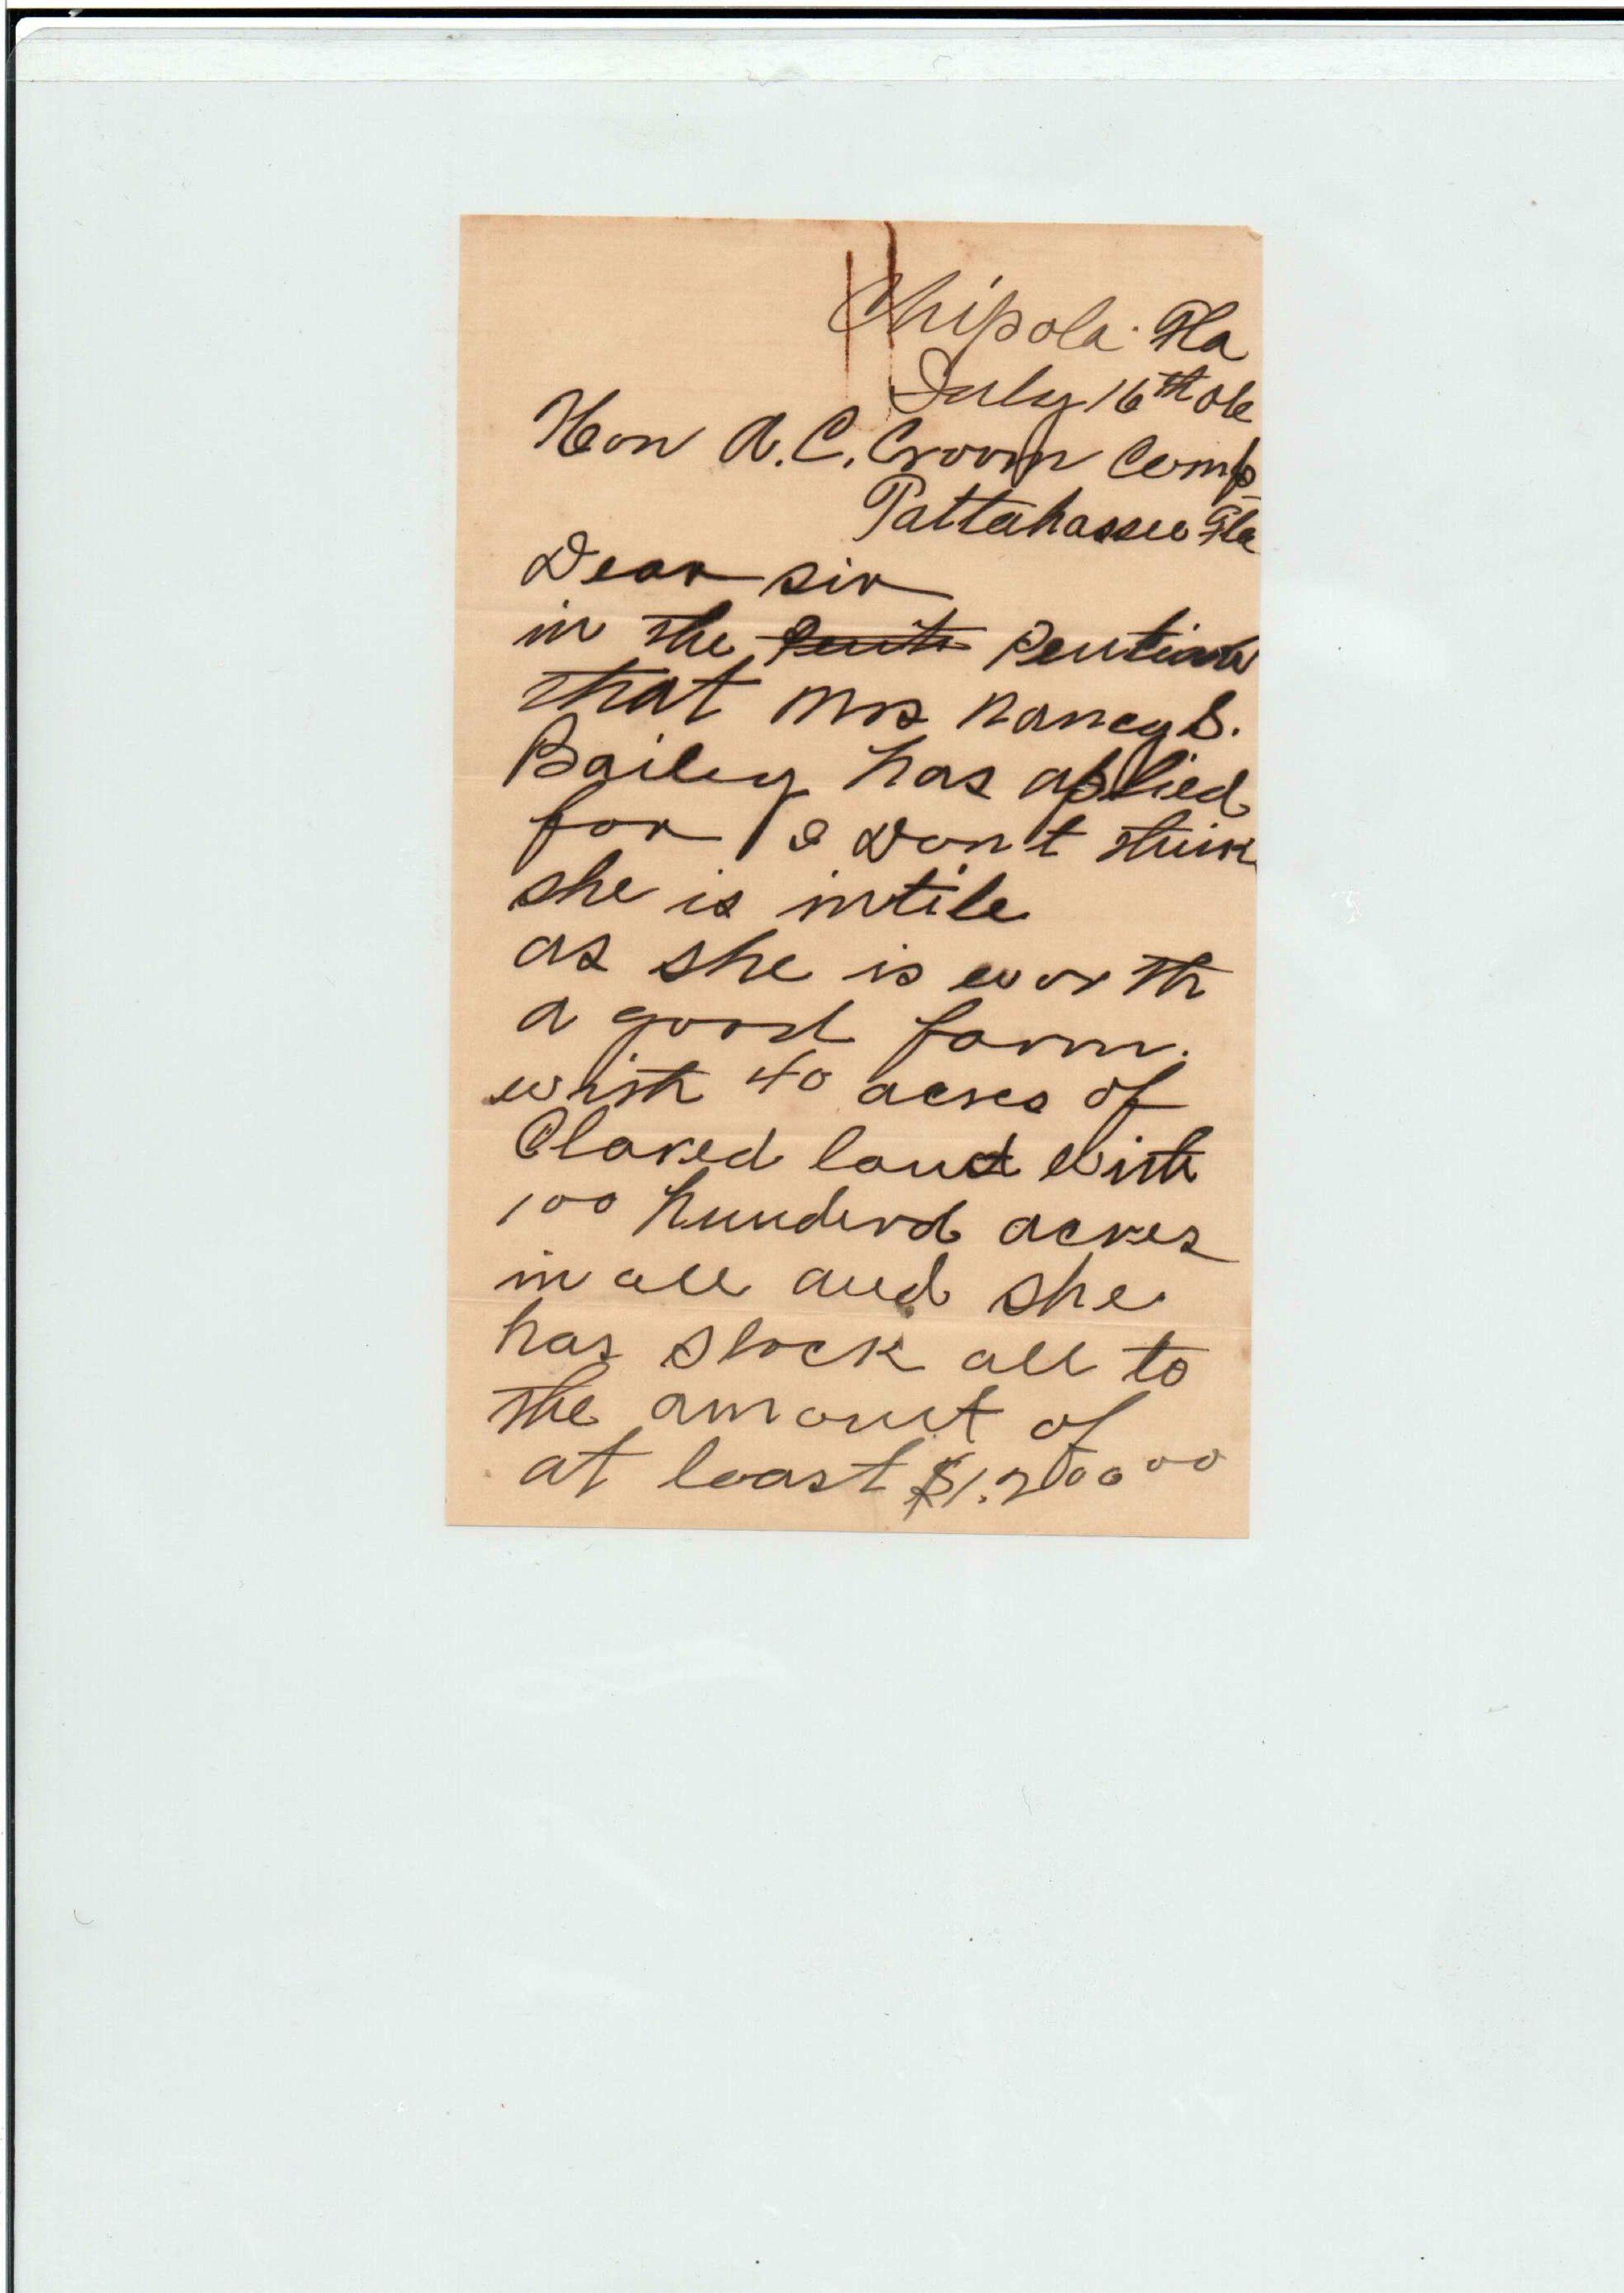 Chipola. Fla
July 16th 06
Hon A. C. Croom Comp
Tallahassee Fla
Dear sir
in the Pentions
that Mrs Nancy S.
Bailey has aplied
for I Don't think
she is intile
as she is worth
a good farm.
whith 40 acres of
Clared land With
100 hunderd acres
in all and she
has stock all to
the amount of
at least $1.200 00